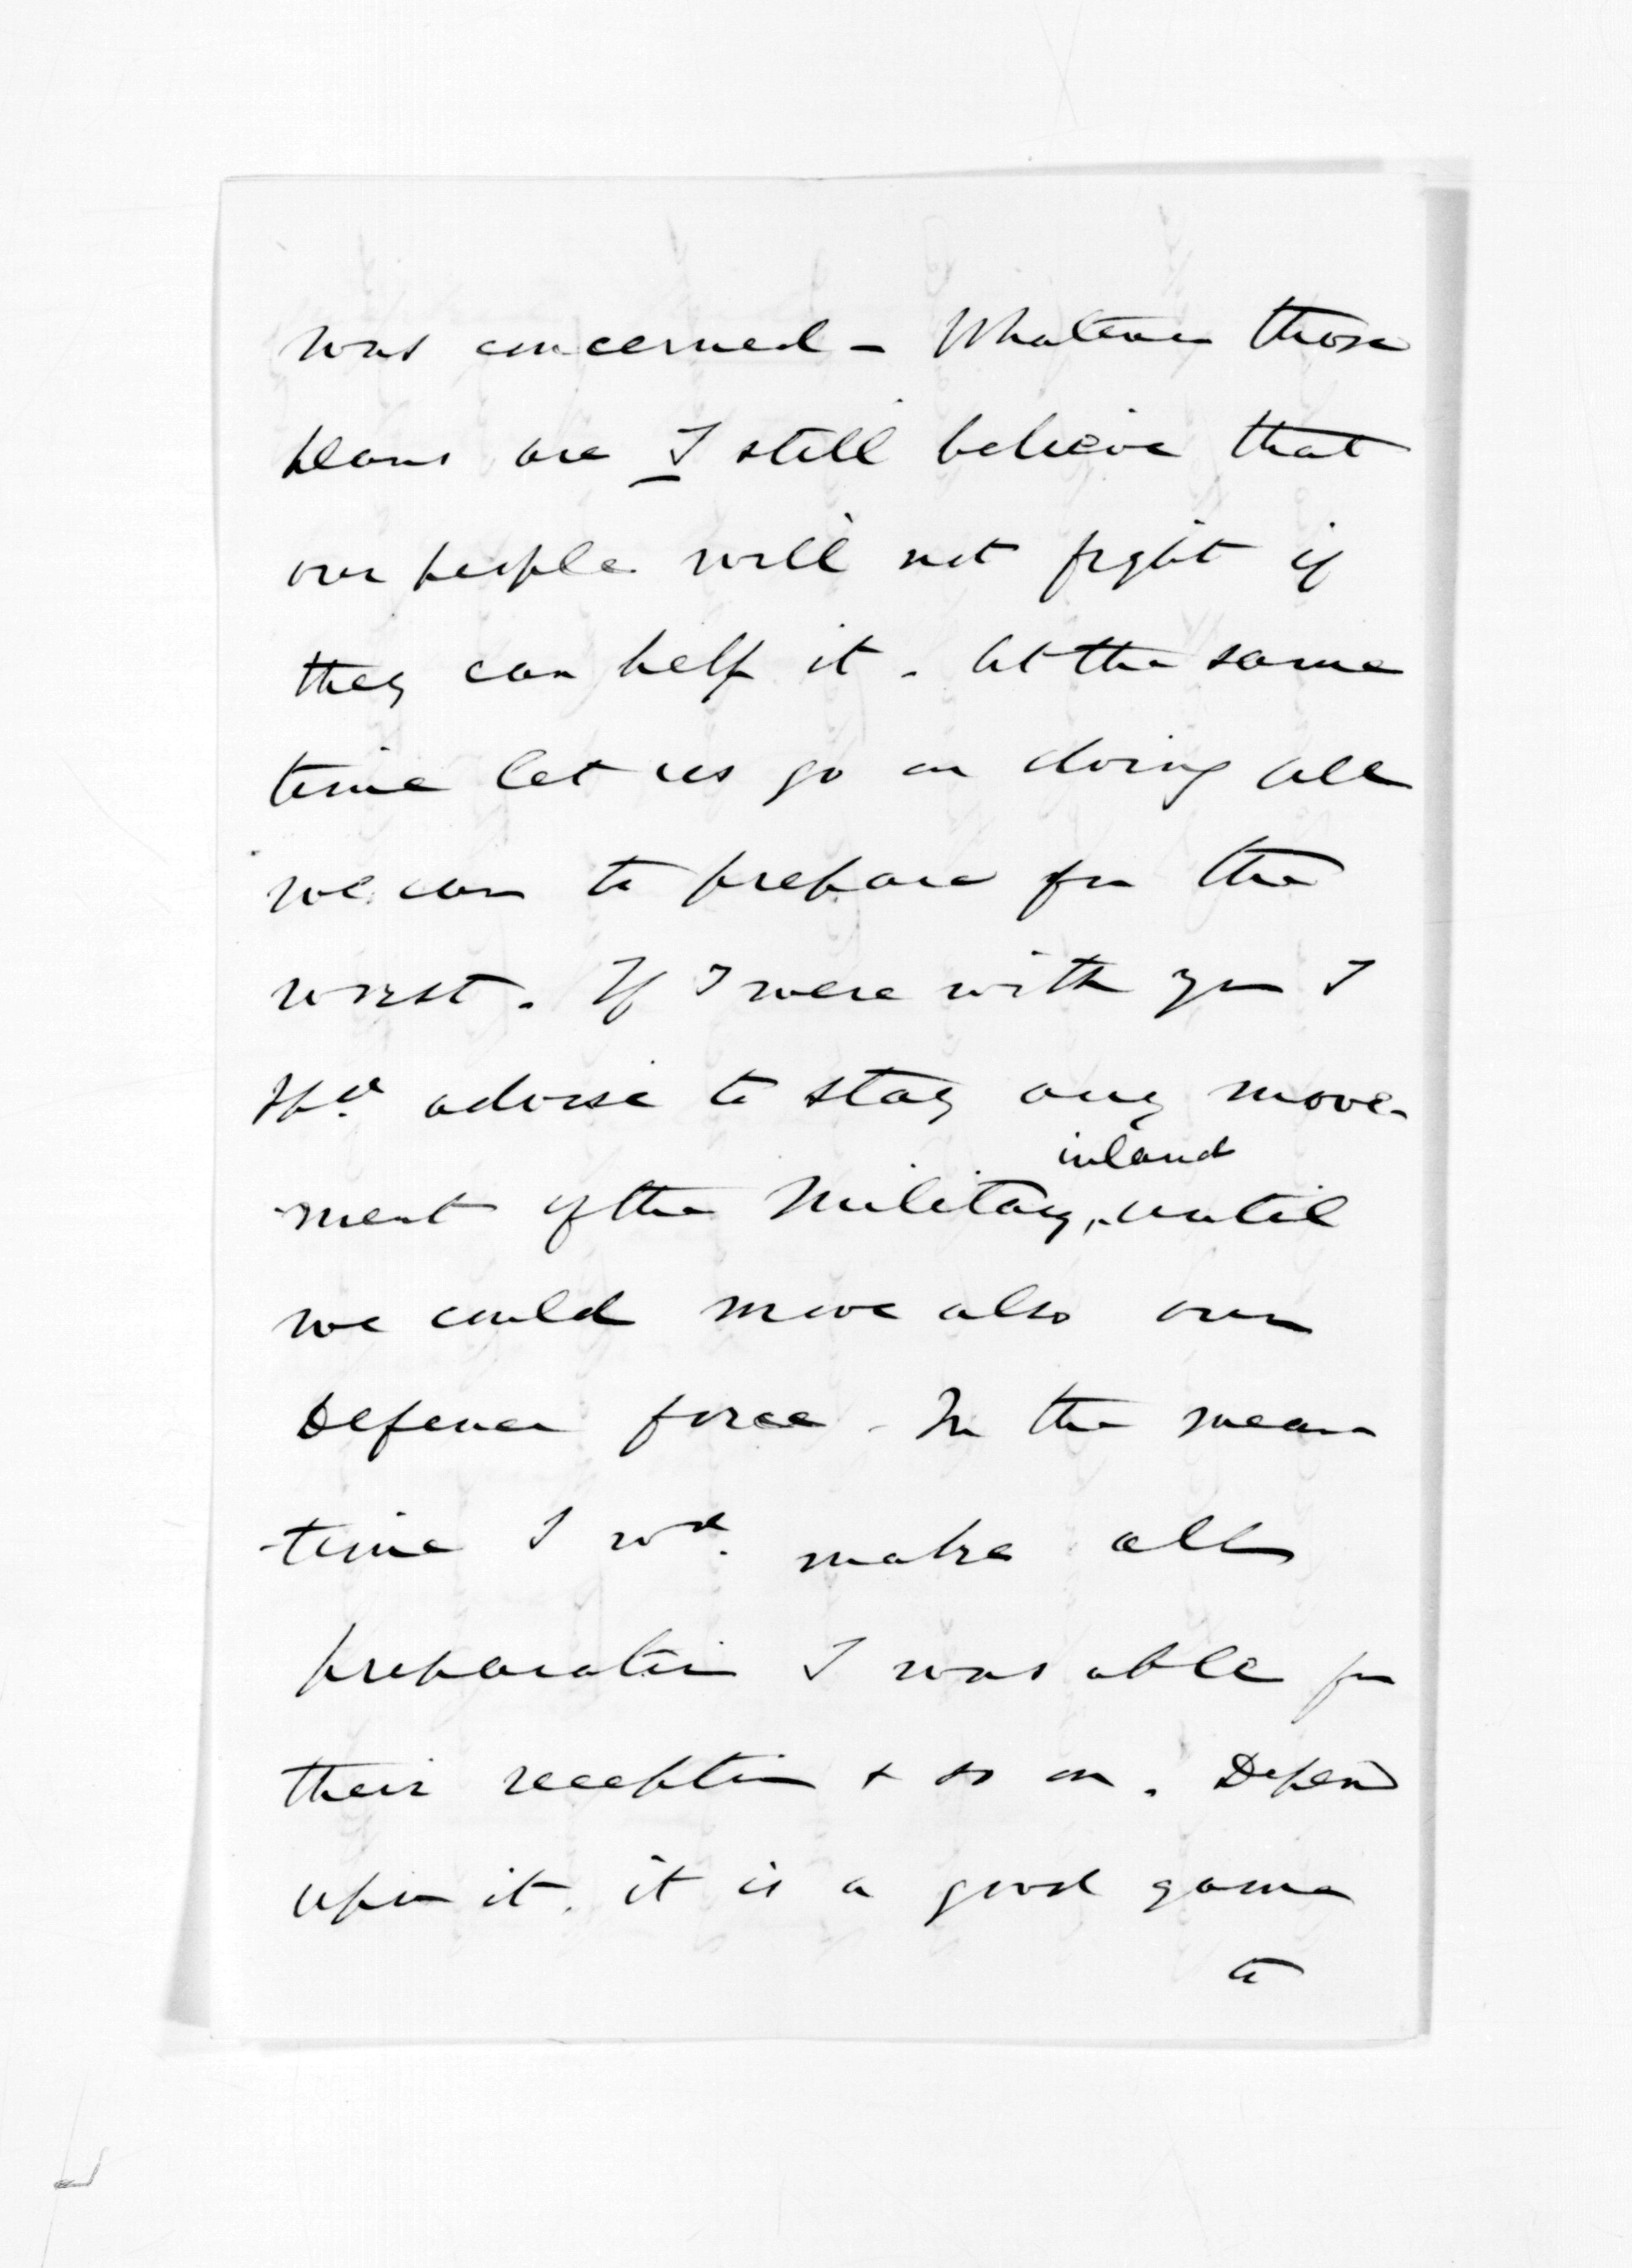 was concerned - Whatever those
plans are I still believe that
our people will not fight if
they can help it. At the same
time let us go on doing all
we can to prepare for the
worst. If I were with you I
shd. advise to stay any move-
inland
-ment of the Military, until
we could move also our
Defence force - In the mean
time I wd. make all
preparation I was able for
their reception & so on. Depend
upon it, it is a good game
to